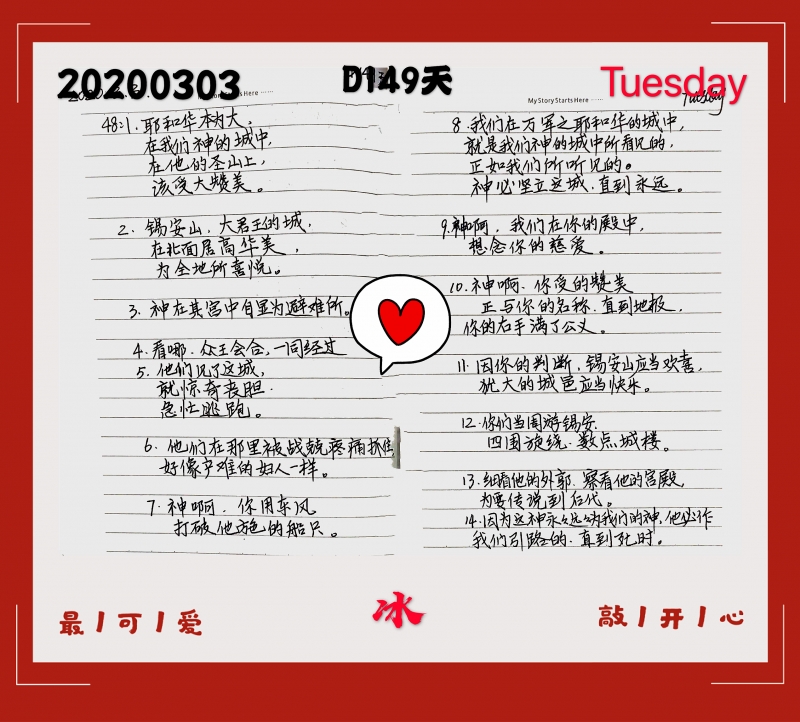 20200303
D149天
Tuesday
My Story Starts Here ······
Tuesday
48:1. 耶和华本为大,
在我们神的城中,
在他的圣山上,
该受大赞美。
2. 锡安山、大君王的城,
在北面居高华美,
为全地所喜悦。
3. 神在其宫中自显为避难所。
4. 看哪、众王会合,一同经过
5. 他们见了这城,
就惊奇丧胆.
急忙逃跑。
6. 他们在那里被战兢疼痛抓住
好像产难的妇人一样。
7. 神啊、你用东风
打破他施的船只。
8. 我们在万军之耶和华的城中,
就是我们神的城中所看见的,
正如我们所听见的。
神必坚立这城、直到永远。
9. 神啊、我们在你的殿中,
想念你的慈爱。
10. 神啊、你受的赞美
正与你的名称、直到地极,
你的右手满了公义。
11. 因你的判断、锡安山应当欢喜,
犹大的城邑应当快乐。
12. 你们当周游锡安.
四围旋绕、数点城楼。
13. 细看他的外郭、察看他的宫殿,
为要传说到后代。
14. 因为这神永永远远为我们的神、他必作
我们引路的、直到死时。
最丨可丨爱
冰
敲丨开丨心